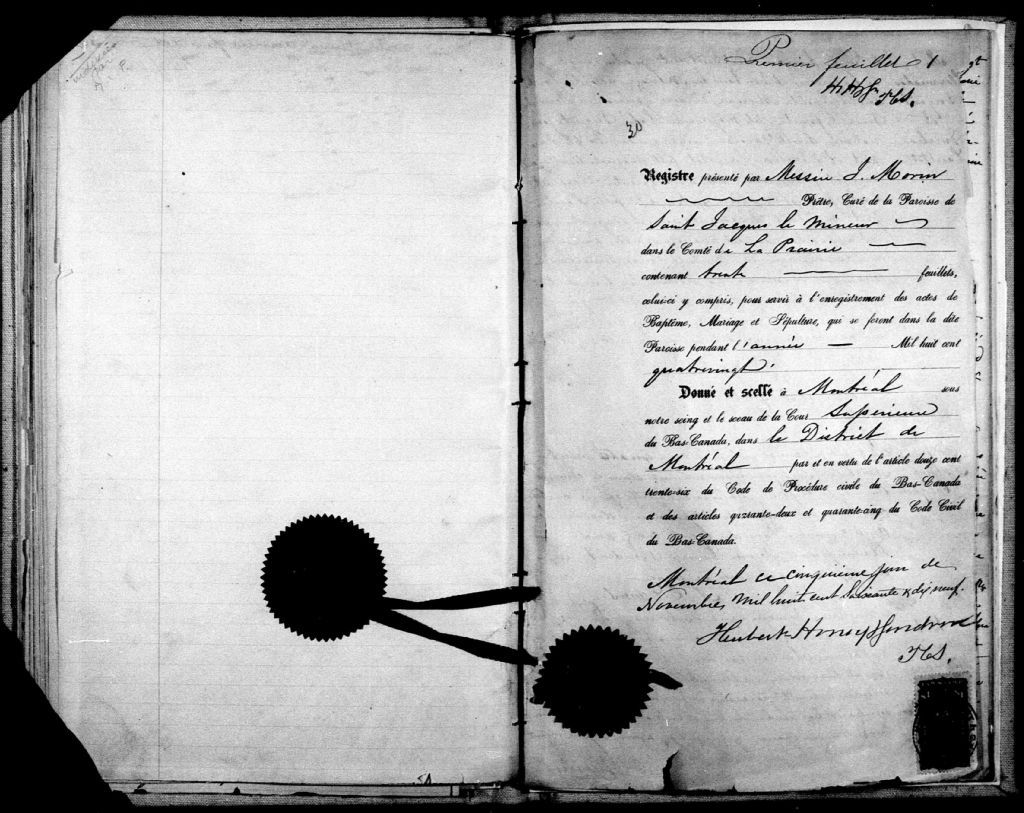 Premier feuillet 1
30
Registre présenté par Messire J. Morin
Prêtre, Curé de la Paroisse de
Saint Jacques le Mineur
dans le Comté de La Prairie
contenant trente feuillets,
celui-ci y compris, pour servir à l'enregistrement des actes de
Baptême, Mariage et Sépulture, qui se feront dans la dite
Paroisse pendant l'année Mil huit cent
quatrevingt.
Donné et scellé à Montréal sous
notre seing et le sceau de la Cour Supérieure
du Bas-Canada, dans le District de
Montréal par et en vertu de l'article douze cent
trente-six du Code de Procédure civile du Bas-Canada
et des articles quarante-deux et quarante-cinq du Code Civil
du Bas-Canada.
Montréal ce cinquième jour de
Novembre Mil huit cent soixante & dix neuf.